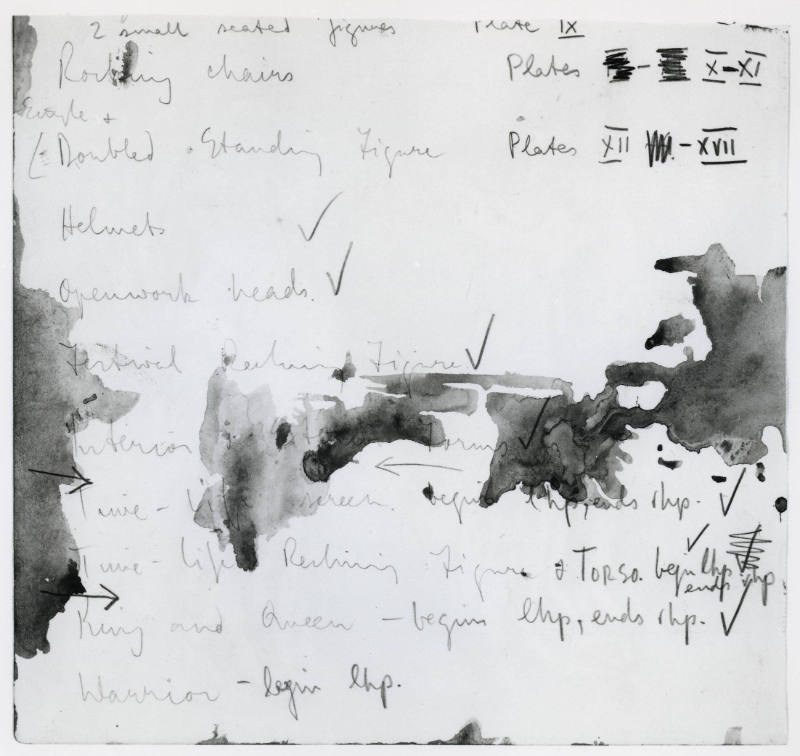 2 small seated figures Plate IX
Rocking chairs Plates - X-XI
Single +
(Doubled Standing Figure Plates XII -XVII
Helmets ✓
Openwork heads. ✓
Festival Reclining Figure ✓
Interior Forms ✓
Time-Life screen. begins lhp, ends rhp. ✓
Time-Life Reclining Figure & Torso. begin lhp ends rhp.
King and Queen - begins lhp, ends rhp. ✓
Warrior - begin lhp.